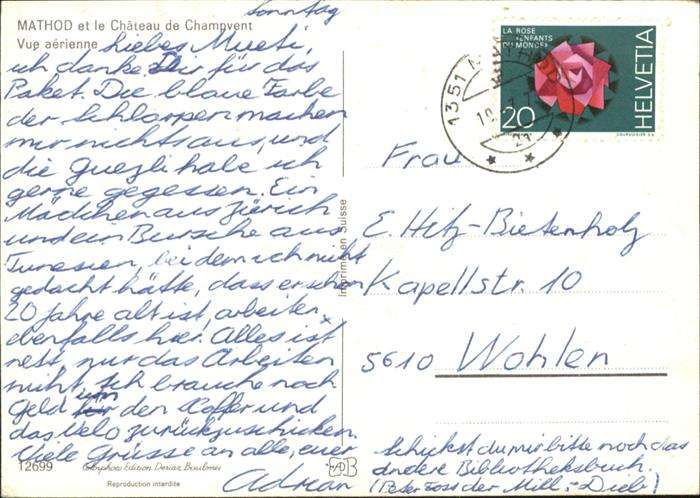 MATHOD et le Château de Champvent
Vue aérienne
Sonntag
Liebes Mueti,
ich danke Dir für das
Paket. Die blaue Farbe
der Schlarpen machen
mir nichts aus, und
die Guezli habe ich
gerne gegessen. Ein
Mädchen aus Zürich
und ein Bursche aus
Tunesien, bei dem ich nicht
gedacht hätte, dass er schon
20 Jahre alt ist, arbeiten
ebenfalls hier. Alles ist
nett, nur das Arbeiten
nicht. Ich brauche noch
Geld um den Koffer und
das Velo zurückzuschicken.
Viele Grüsse an alle, euer
Adrian
12699
Reproduction interdite
Imprimé en Suisse
LA ROSE
ENFANTS
DU MONDE
HELVETIA
20
COURVOISIER S.A.
1351
Frau
E. Hitz-Bietenholz
Kapellstr. 10
5610 Wohlen
Schickst du mir bitte noch das
andere Bibliotheksbuch.
(Peter Voss der Mill.-Dieb)